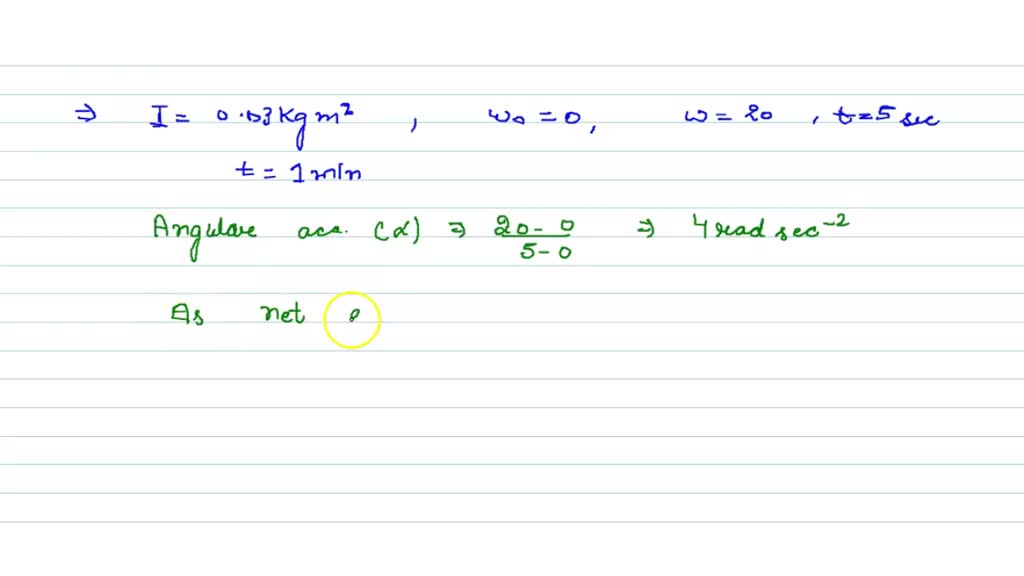 ⇒ I = 0.03 Kg m², ω₀ = 0, ω = 20, t = 5 sec
t = 1 min
Angulare acc. (α) ⇒ 20 - 0 / 5 - 0 ⇒ 4 rad sec⁻²
As net